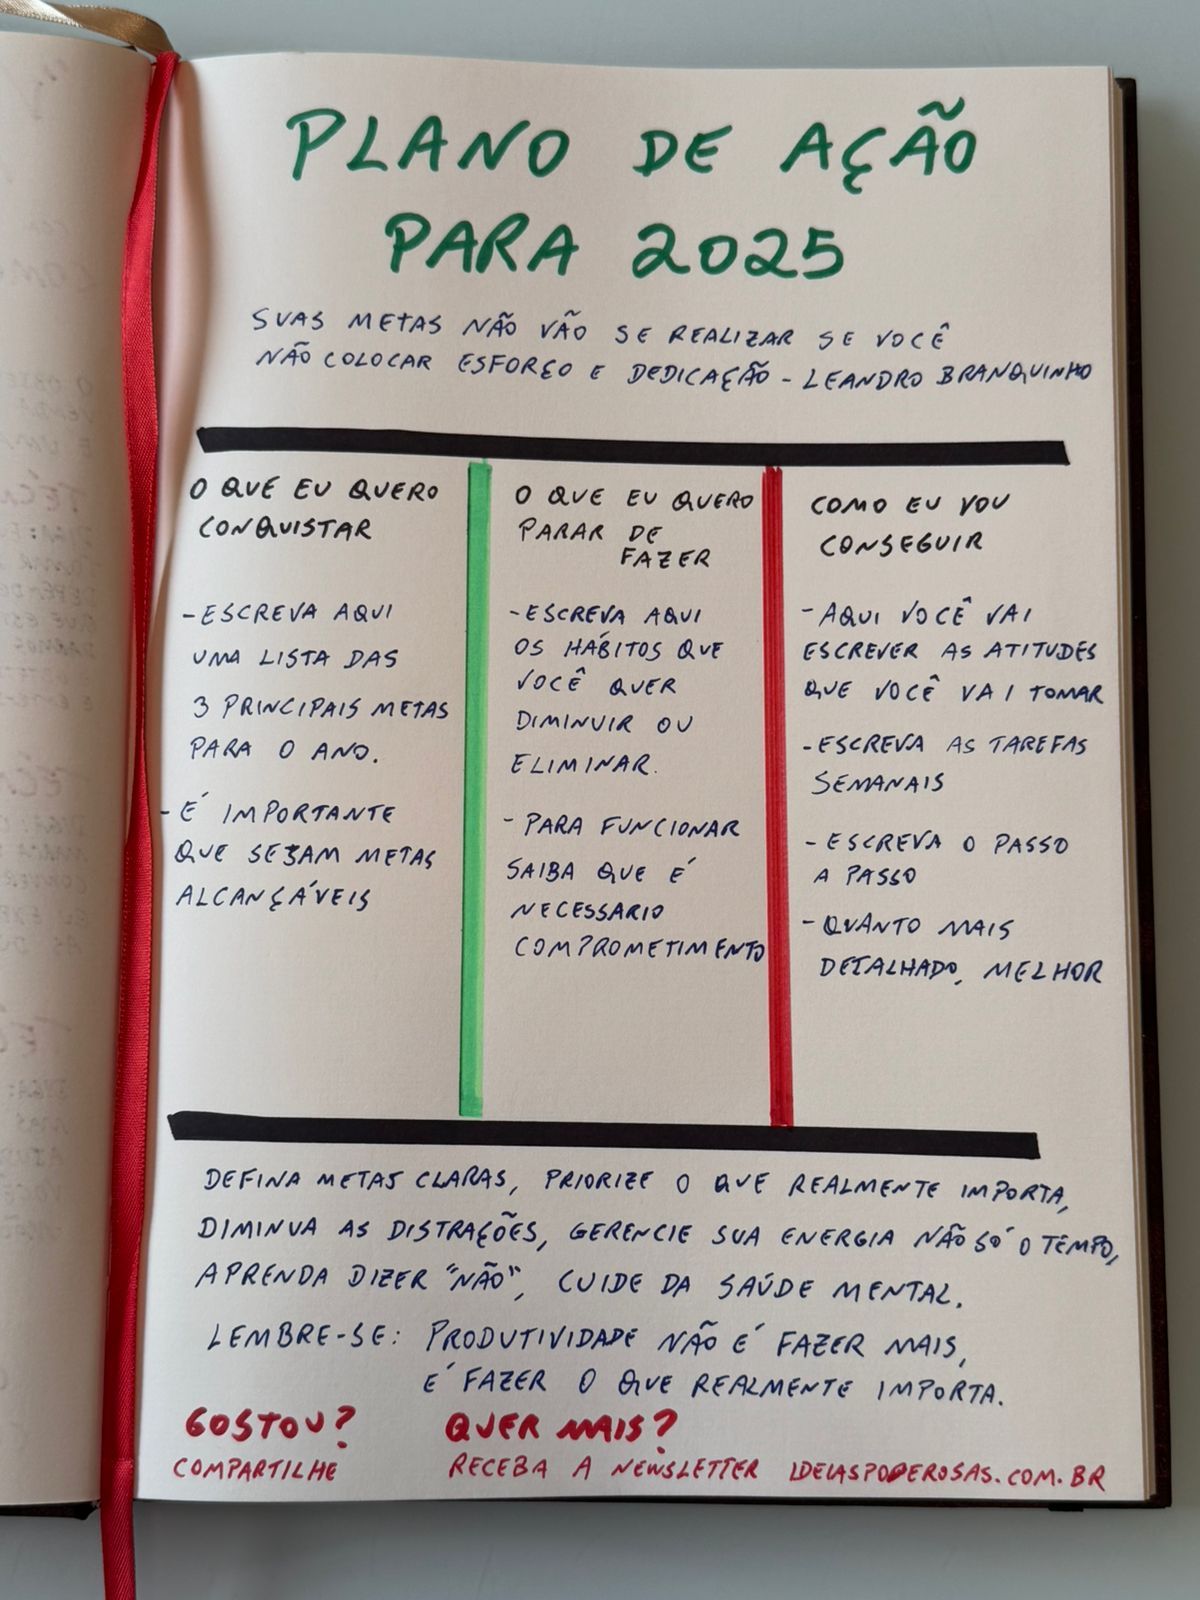 PLANO DE AÇÃO
PARA 2025
SUAS METAS NÃO VÃO SE REALIZAR SE VOCÊ
NÃO COLOCAR ESFORÇO E DEDICAÇÃO - LEANDRO BRANQUINHO
O QUE EU QUERO
CONQUISTAR
- ESCREVA AQUI
UMA LISTA DAS
3 PRINCIPAIS METAS
PARA O ANO.
- É IMPORTANTE
QUE SEJAM METAS
ALCANÇÁVEIS
O QUE EU QUERO
PARAR DE
FAZER
- ESCREVA AQUI
OS HÁBITOS QUE
VOCÊ QUER
DIMINUIR OU
ELIMINAR.
- PARA FUNCIONAR
SAIBA QUE É
NECESSARIO
COMPROMETIMENTO
COMO EU VOU
CONSEGUIR
- AQUI VOCÊ VAI
ESCREVER AS ATITUDES
QUE VOCÊ VAI TOMAR
- ESCREVA AS TAREFAS
SEMANAIS
- ESCREVA O PASSO
A PASSO
- QUANTO MAIS
DETALHADO, MELHOR
DEFINA METAS CLARAS, PRIORIZE O QUE REALMENTE IMPORTA,
DIMINUA AS DISTRAÇÕES, GERENCIE SUA ENERGIA NÃO SÓ O TEMPO,
APRENDA DIZER "NÃO", CUIDE DA SAÚDE MENTAL.
LEMBRE-SE: PRODUTIVIDADE NÃO É FAZER MAIS,
É FAZER O QUE REALMENTE IMPORTA.
GOSTOU? QUER MAIS?
COMPARTILHE RECEBA A NEWSLETTER IDEIASPODEROSAS.COM.BR